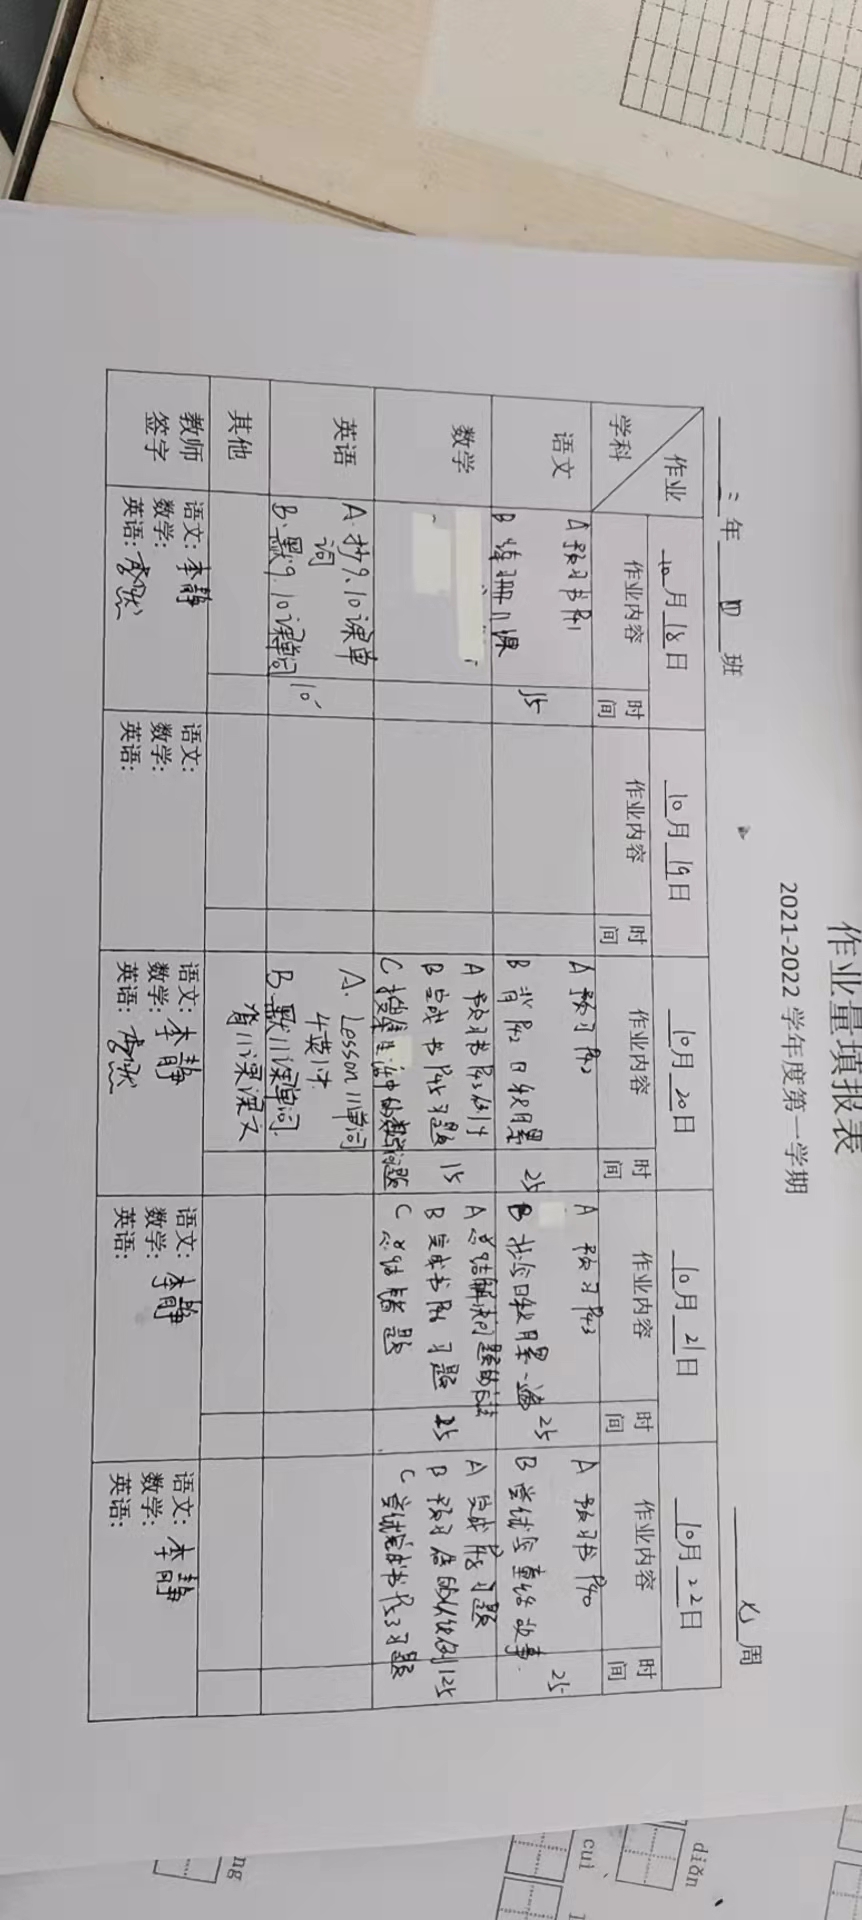 作业量填报表
2021-2022 学年度第一学期
三年 四 班 七周
作业
学科
10月18日
10月19日
10月20日
10月21日
10月22日
作业内容 时间
作业内容 时间
作业内容 时间
作业内容 时间
作业内容 时间
语文
A 预习书P41
B 练习册11课
15
A 预习P42
B 背P42日积月累
25
A 预习P43
B 抄写日积月累一遍
25
A 预习书P40
B 尝试写童话故事.
25
数学
A 预习书P43例4
B 完成书P45习题
C 搜集生活中的数学问题
15
A 总结解决问题的方法
B 完成书 习题
C 总结错题
25
A 完成P48习题
B 预习倍的认识例1
C 尝试完成书P53习题
25
英语
A.抄9.10课单词
B.默9.10课单词
10'
A.Lesson 11单词
4英1汉
B.默11课单词.
背11课课文
其他
教师签字
语文:李静
数学:
英语:
语文:
数学:
英语:
语文:李静
数学:
英语:
语文:李静
数学:
英语:
语文:李静
数学:
英语:
diǎn
cuì
ng